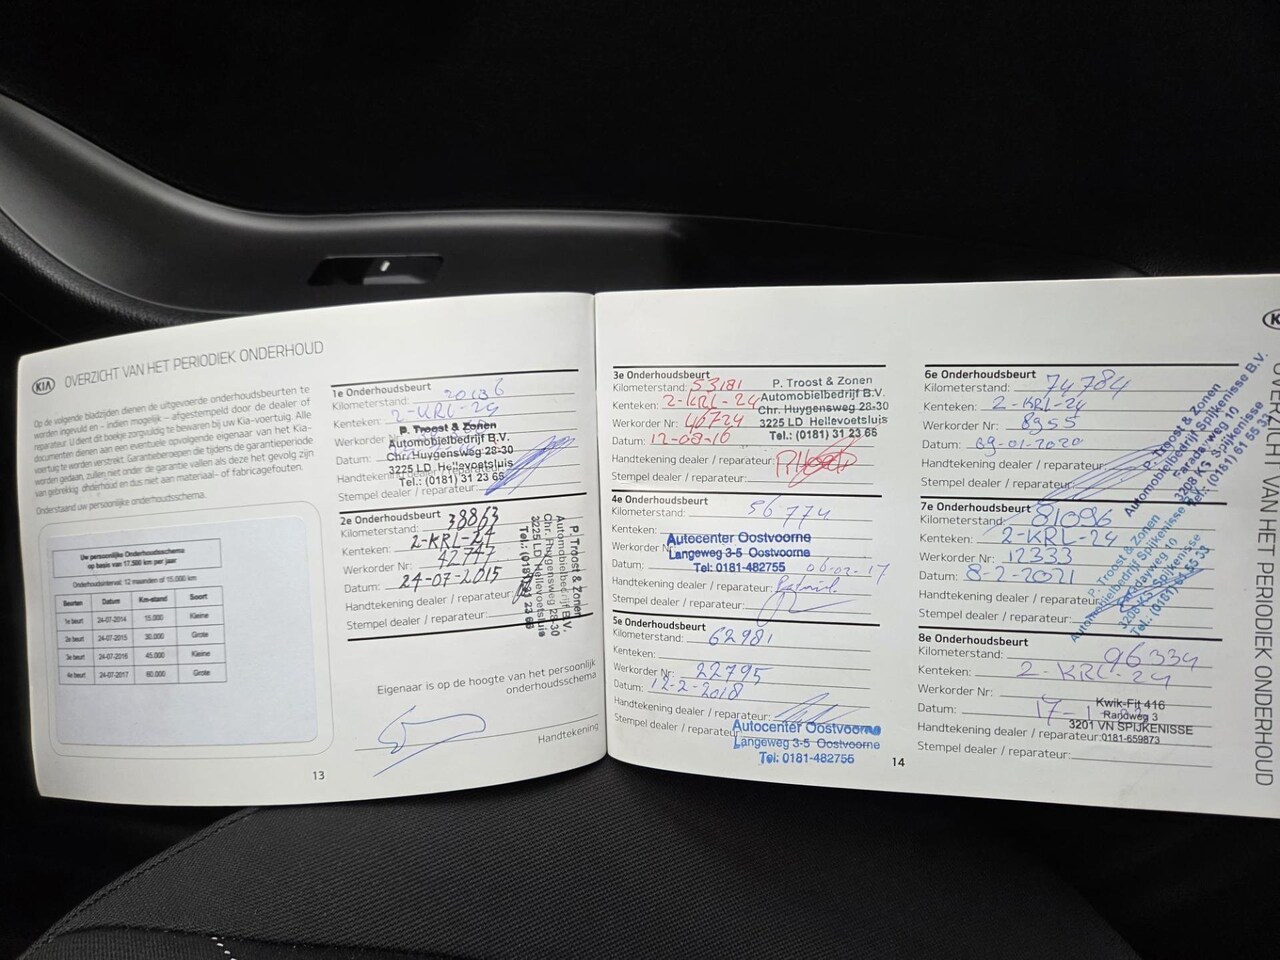 KIA OVERZICHT VAN HET PERIODIEK ONDERHOUD
Op de volgende bladzijden dienen de uitgevoerde onderhoudsbeurten te
worden ingevuld en – indien mogelijk – afgestempeld door de dealer of
reparateur. U dient dit boekje zorgvuldig te bewaren bij uw Kia-voertuig. Alle
documenten dienen aan een eventuele opvolgende eigenaar van het Kia-
voertuig te worden verstrekt. Garantieberoepen die tijdens de garantieperiode
worden gedaan, zullen niet onder de garantie vallen als deze het gevolg zijn
van gebrekkig onderhoud en dus niet aan materiaal- of fabricagefouten.
Onderstaand uw persoonlijke onderhoudsschema.
Uw persoonlijke Onderhoudsschema
op basis van 17.500 km per jaar
Onderhoudsinterval: 12 maanden of 15.000 km
Beurten Datum Km-stand Soort
1e beurt 24-07-2014 15.000 Kleine
2e beurt 24-07-2015 30.000 Grote
3e beurt 24-07-2016 45.000 Kleine
4e beurt 24-07-2017 60.000 Grote
13
1e Onderhoudsbeurt
Kilometerstand: 20136
Kenteken: 2-KRL-24
Werkorder Nr:
Datum:
Handtekening
Stempel dealer / reparateur:
P. Troost & Zonen
Automobielbedrijf B.V.
Chr. Huygensweg 28-30
3225 LD Hellevoetsluis
Tel.: (0181) 31 23 66
2e Onderhoudsbeurt
Kilometerstand: 38863
Kenteken: 2-KRL-24
Werkorder Nr: 42747
Datum: 24-07-2015
Handtekening dealer / reparateur:
Stempel dealer / reparateur:
P. Troost & Zonen
Automobielbedrijf B.V.
Chr. Huygensweg 28-30
3225 LD Hellevoetsluis
Tel.: (0181) 31 23 66
Eigenaar is op de hoogte van het persoonlijk
onderhoudsschema
Handtekening
3e Onderhoudsbeurt
Kilometerstand: 53181
Kenteken: 2-KRL-24
Werkorder Nr: 46724
Datum: 12-08-16
Handtekening dealer / reparateur:
Stempel dealer / reparateur:
P. Troost & Zonen
Automobielbedrijf B.V.
Chr. Huygensweg 28-30
3225 LD Hellevoetsluis
Tel.: (0181) 31 23 66
4e Onderhoudsbeurt
Kilometerstand: 56774
Kenteken:
Werkorder Nr:
Datum: 06-02-17
Handtekening dealer / reparateur:
Stempel dealer / reparateur:
Autocenter Oostvoorne
Langeweg 3-5 Oostvoorne
Tel: 0181-482755
5e Onderhoudsbeurt
Kilometerstand: 62981
Kenteken:
Werkorder Nr: 22795
Datum: 12-2-2018
Handtekening dealer / reparateur:
Stempel dealer / reparateur:
Autocenter Oostvoorne
Langeweg 3-5 Oostvoorne
Tel: 0181-482755
14
6e Onderhoudsbeurt
Kilometerstand: 74784
Kenteken: 2-KRL-24
Werkorder Nr: 8955
Datum: 09-01-2020
Handtekening dealer / reparateur:
Stempel dealer / reparateur:
P. Troost & Zonen
Automobielbedrijf Spijkenisse B.V.
Faradayweg 10
3208 KS Spijkenisse
Tel.: (0181) 61 55
7e Onderhoudsbeurt
Kilometerstand: 81096
Kenteken: 2-KRL-24
Werkorder Nr: 12333
Datum: 8-2-2021
Handtekening dealer / reparateur:
Stempel dealer / reparateur:
P. Troost & Zonen
Automobielbedrijf Spijkenisse
Faradayweg 10
3208 KS Spijkenisse
Tel.: (0181)
8e Onderhoudsbeurt
Kilometerstand: 96334
Kenteken: 2-KRL-24
Werkorder Nr:
Datum: 17-1-
Handtekening dealer / reparateur:
Stempel dealer / reparateur:
Kwik-Fit 416
Randweg 3
3201 VN SPIJKENISSE
0181-659873
OVERZICHT VAN HET PERIODIEK ONDERHOUD